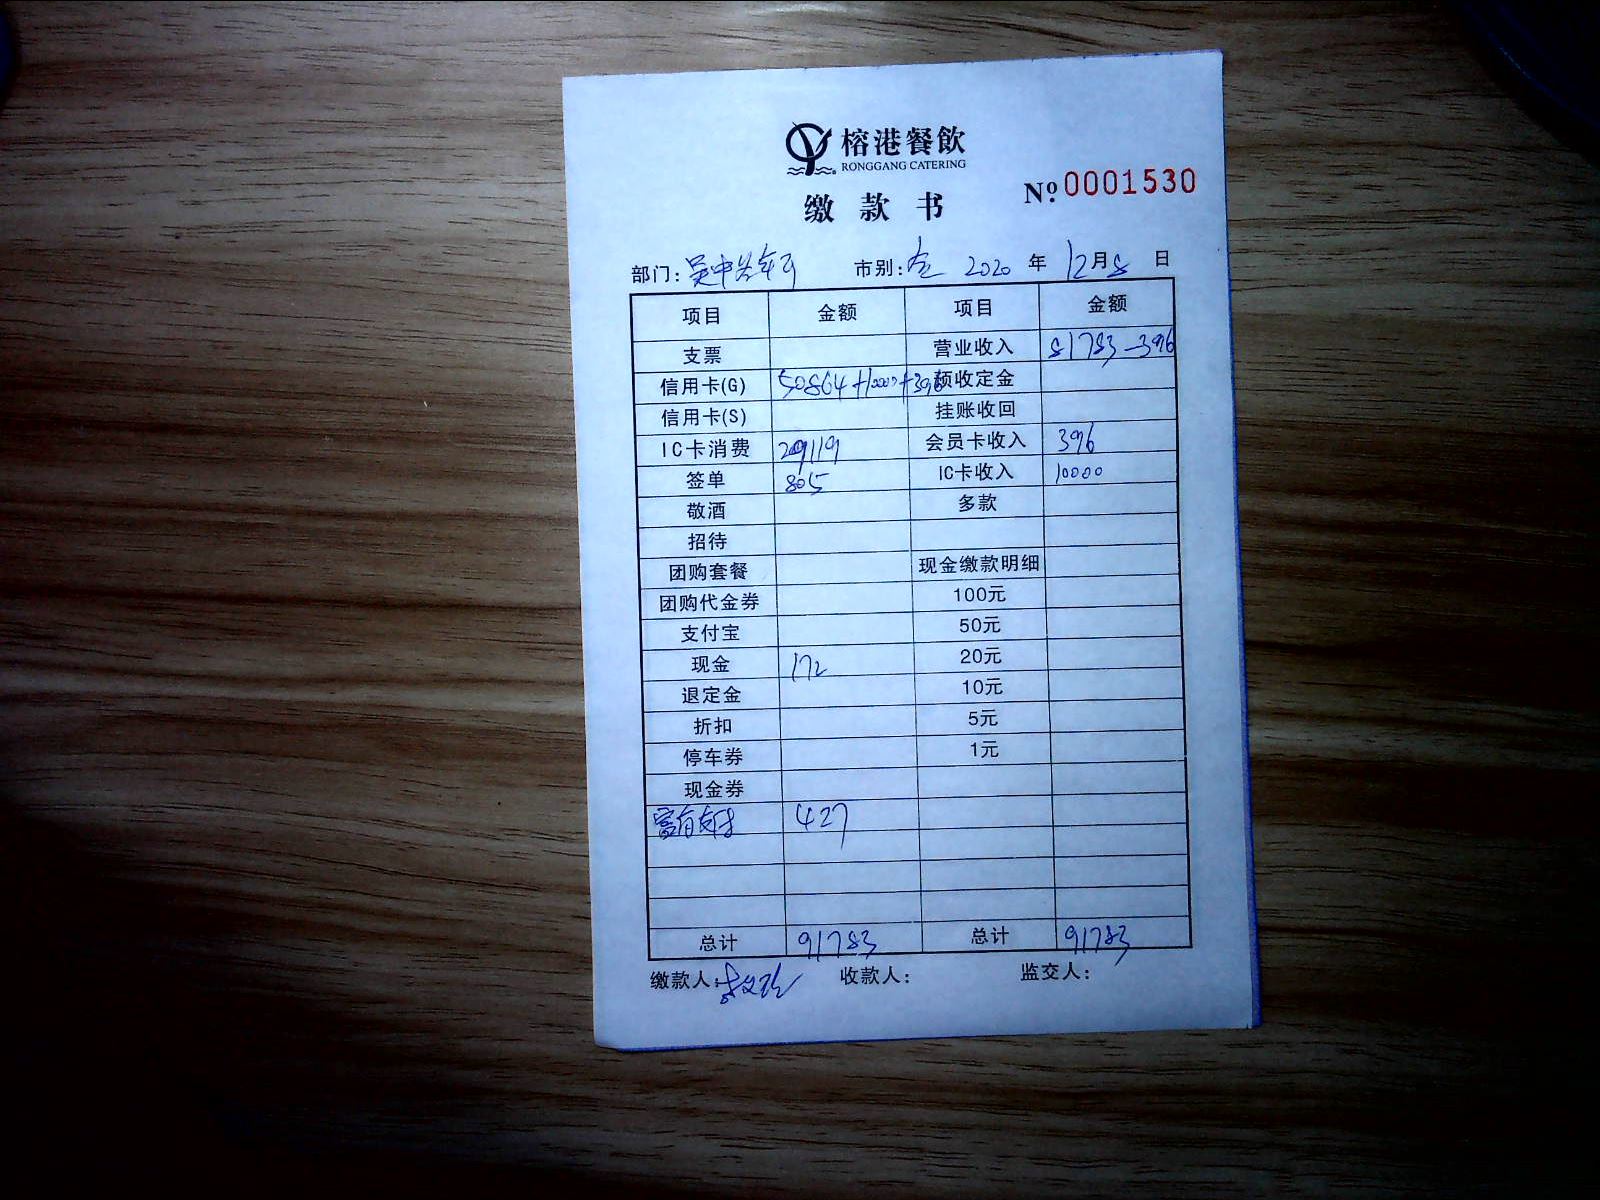 榕港餐飲
RONGGANG CATERING
缴款书
№ 0001530
部门: 市别: 全 2020 年 12月8 日
项目 金额 项目 金额
支票 营业收入 81783-396
信用卡(G) 50864+10000+396 预收定金
信用卡(S) 挂账收回
IC卡消费 29119 会员卡收入 396
签单 805 IC卡收入 10000
敬酒 多款
招待
团购套餐 现金缴款明细
团购代金券 100元
支付宝 50元
现金 172 20元
退定金 10元
折扣 5元
停车券 1元
现金券
427
总计 91783 总计 91783
缴款人: 收款人: 监交人: